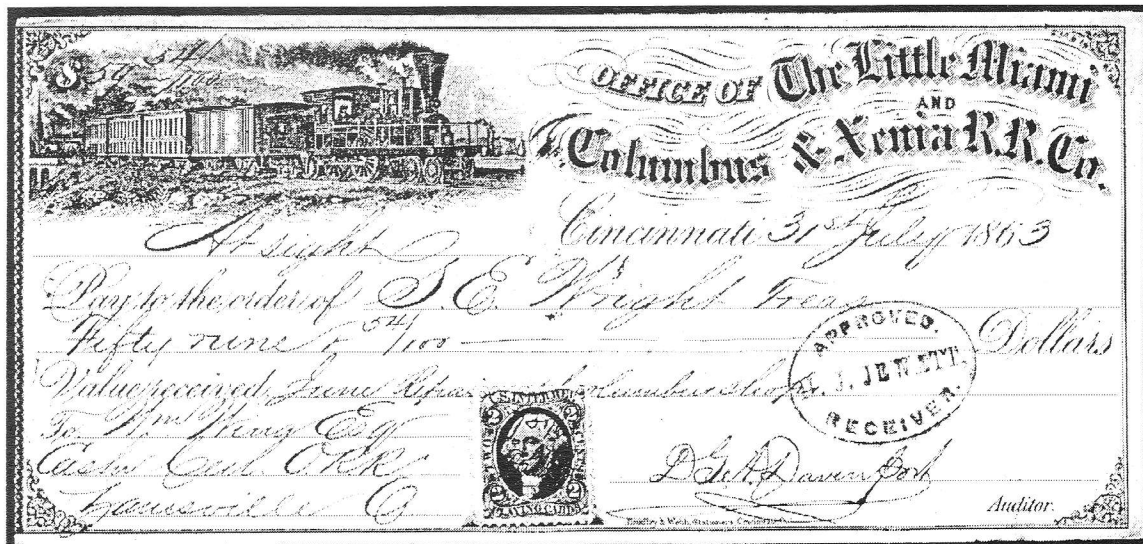 $ 59 54/100
OFFICE OF The Little Miami
AND
Columbus & Xenia R.R. Co.
At sight Cincinnati 31st July 1863
Pay to the order of S. E. Wright Treas
Fifty nine & 54/100 Dollars
Value received June Columbus shops
APPROVED.
H. J. JEWETT.
RECEIVER.
To Wm Wing Esq
Cashr Cent. O RR
Zanesville O
U.S. INTER. REV.
2 2
TWO CENTS
2 2
PLAYING CARDS
Davenport
Auditor.
Bradley & Webb, Stationers, Cincinnati, O.